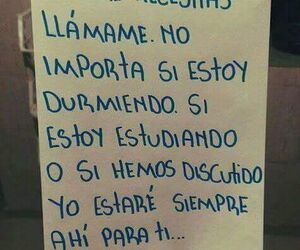 NECESITAS
LLÁMAME. NO
IMPORTA SI ESTOY
DURMIENDO. SI
ESTOY ESTUDIANDO
O SI HEMOS DISCUTIDO
YO ESTARÉ SIEMPRE
AHÍ PARA TI...